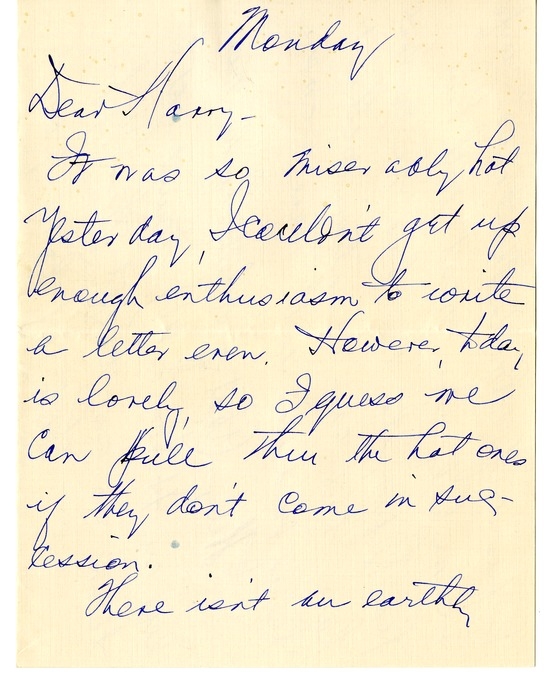 Monday
Dear Harry-
It was so miserably hot
Yesterday, I couldn't get up
enough enthusiasm to write
a letter even. However, today,
is lovely, so I guess we
can pull thru the hot ones
if they don't come in suc-
cession.
There isn't an earthly